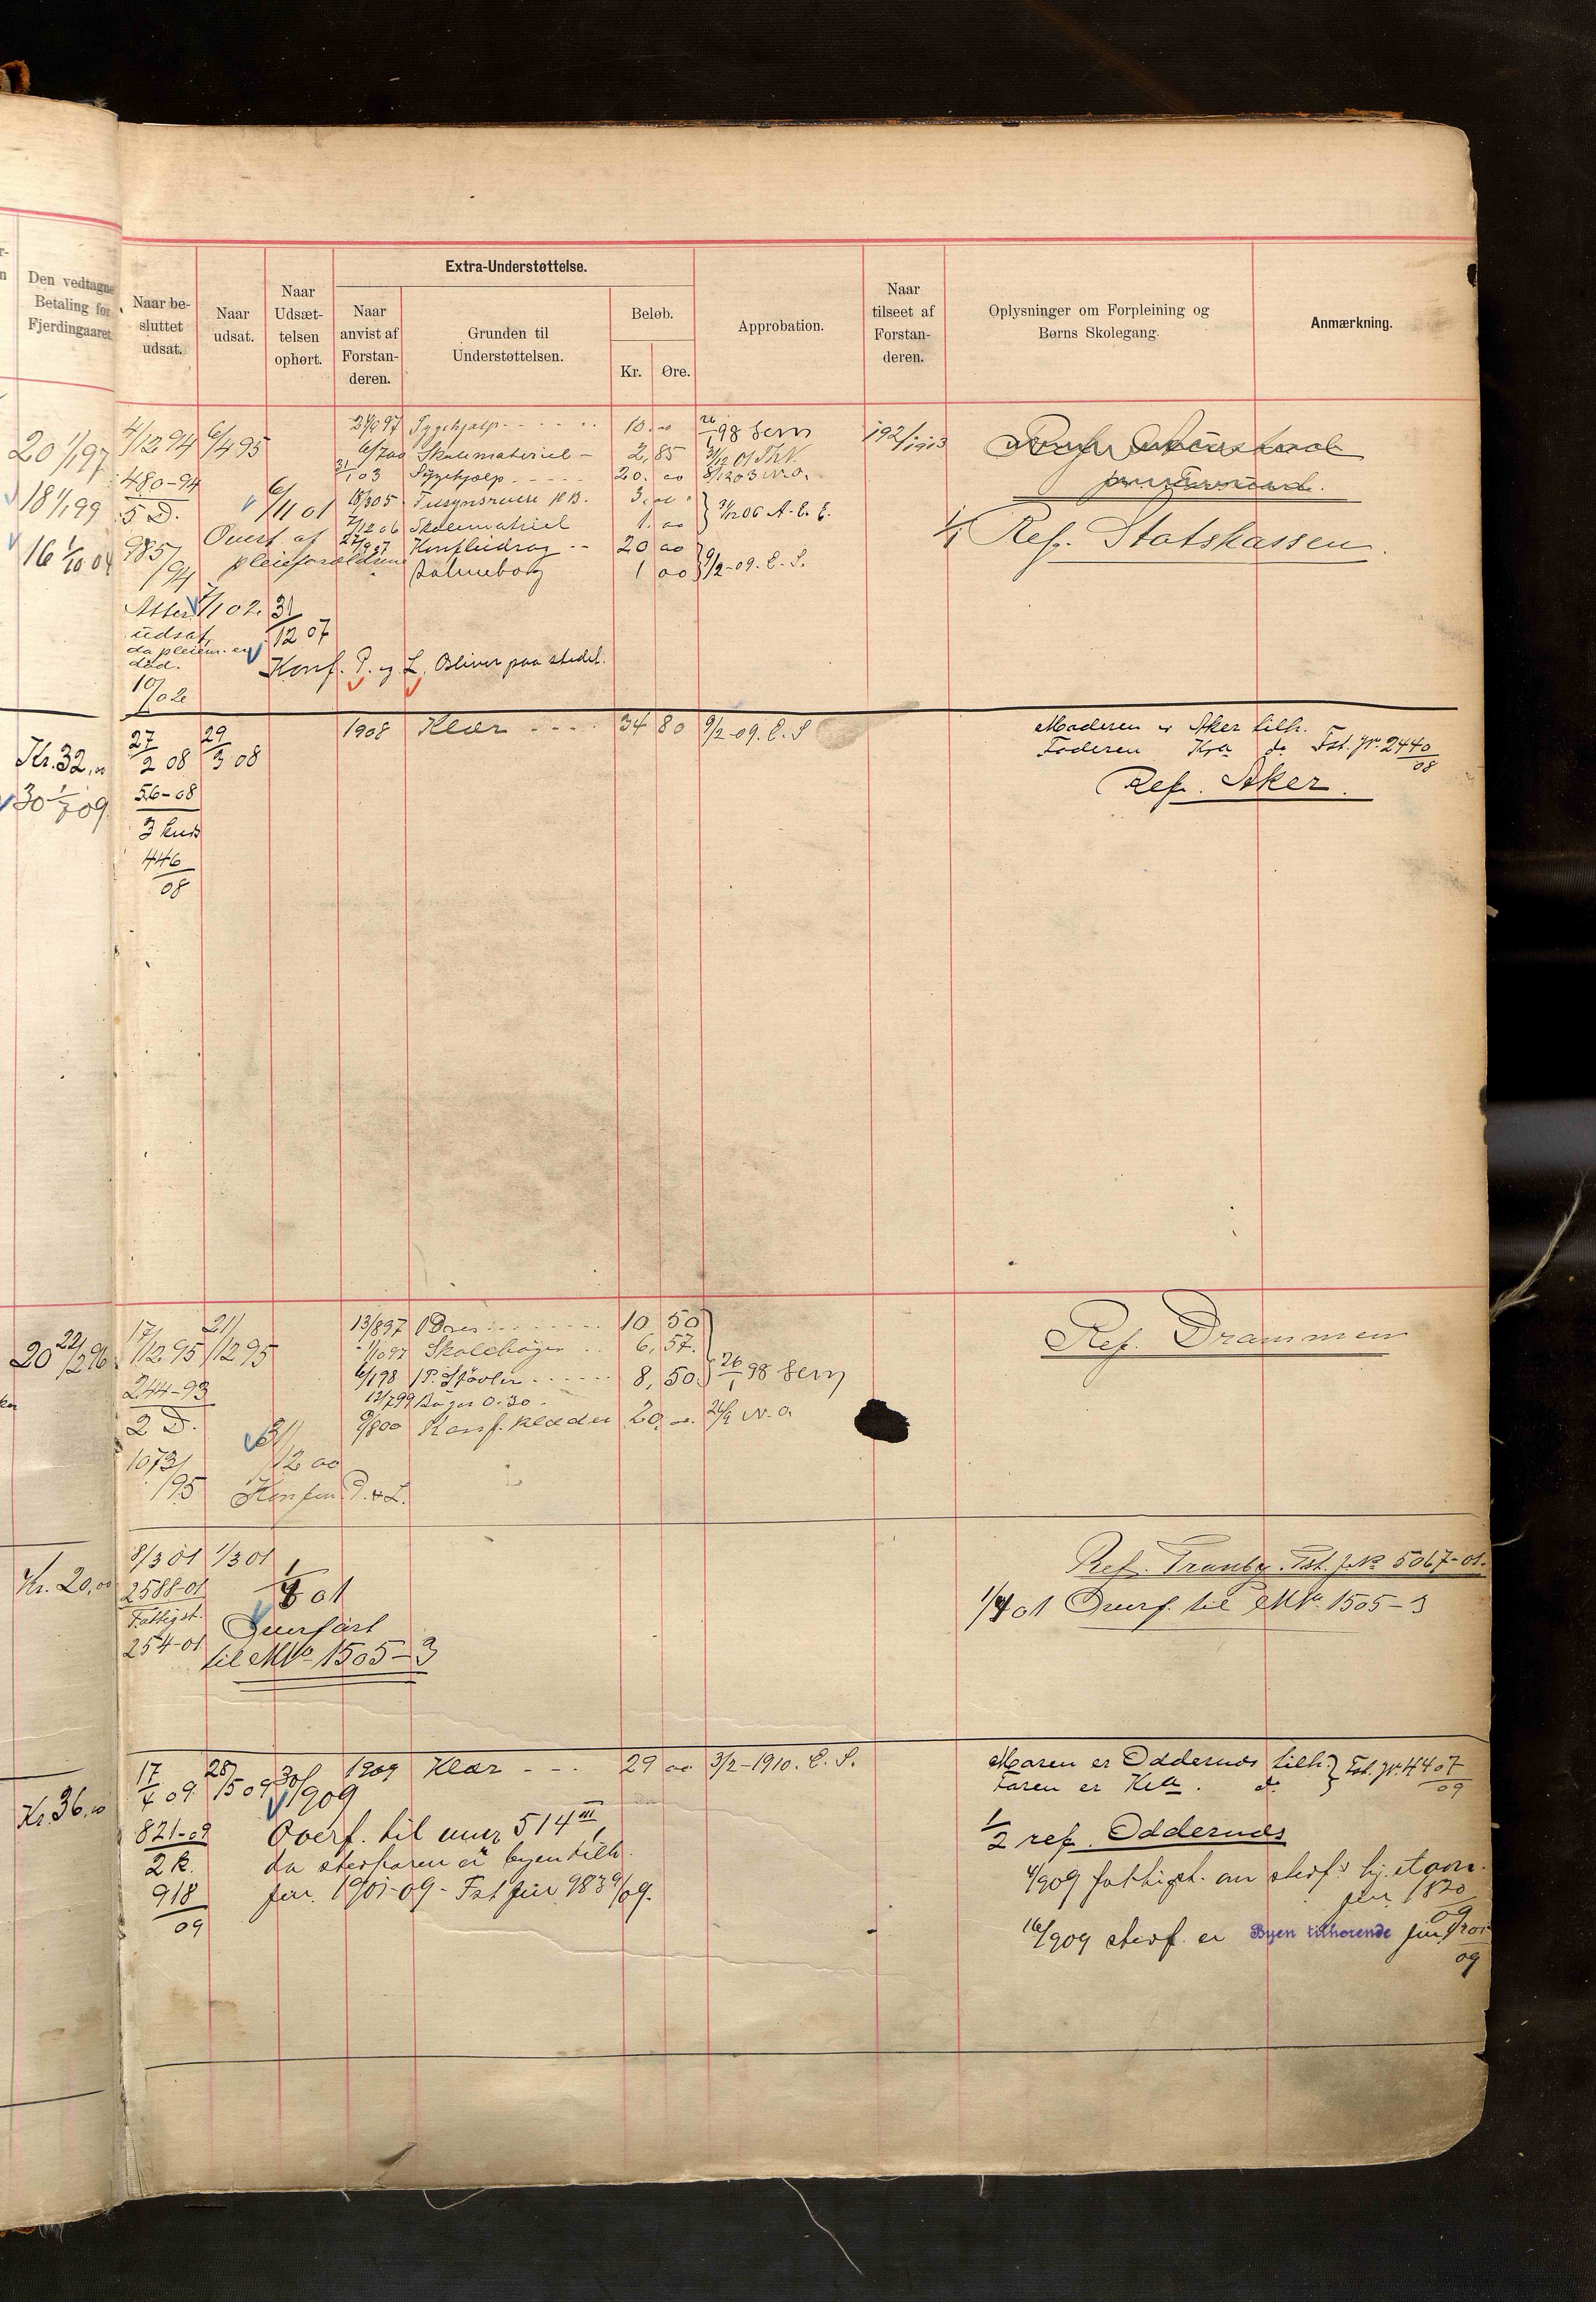 Den vedtagne
Betaling for
Fjerdingaaret
Naar be-
sluttet
udsat.
Naar
udsat.
Naar
Udsæt-
telsen
ophørt.
Extra-Understøttelse.
Naar
anvist af
Forstan-
deren.
Grunden til
Understøttelsen.
Beløb.
Kr.
Øre.
Approbation.
Naar
tilseet af
Forstan-
deren.
Oplysninger om Forpleining og
Børns Skolegang.
Anmærkning.
20 1/1 97
18 1/1 99
16 1/10 04
4/12 94
6/4 95
480-94
5 D.
985/94
6/11 01
Overf. af
pleieforældrene
Sygehjælp 10.00 26/1 98
6/7 00 Skolemateriel 2,85
31/1 03 Sygehjælp 20.00
18/3 05 3.00
7/12 06 Skolemateriel 1.00
20 00
Salmebog 1 00 9/2-09. E. S.
Atter 7/1 02.
udsat,
da pleiem. er
død.
10/02
31/12 07
Konf. P. og L. Bliver paa stedet.
1/1 Ref. Statskassen.
Kr. 32,00
30 1/7 09
27/2 08
29/3 08
56-08
446/08
1908 Klær 34 80 9/2-09. E. S
Moderen er Aker tilh.
Faderen Kra do Fst. Jr. 2440/08
Ref. Aker.
20 22/12 96
17/12 95
21/12 95
244-93
2 D.
1073/95
31/12 00
Konfirm. P. & L.
13/8 97 1 Dres 10 50
1/10 97 Skolebøger 6,57.
6/1 98 1 P. Støvler 8,50. 26/1 98
12/7 99 Bøger 0.30
Konf. klæder 20
Ref. Drammen
Kr. 20,00
8/3 01
1/3 01
2588-01
Fattigst.
254-01
1/4 01
Overført
til M№ 1505-3
Ref. Tranby. Fst. J.№ 5067-01.
1/4 01 Overf. til M№ 1505-3
Kr. 36,00
17/4 09
28/5 09
30/9 09
821-09
2 K.
918/09
1909 Klær 29 00 3/2-1910. E. S.
Overf. til mnr 514 III,
da stesfaren er byen tilh.
jnr. 1901-09 - Fst jnr 9839/09.
Moren er Oddernes tilh. Fst. Jr. 4407/09
Faren er Kra. do
1/2 ref. Oddernes
4/9 09 fattigst. om stesf.s hj. stavn.
jnr 1820/09
16/9 09 stesf. er Byen tilhørende jnr